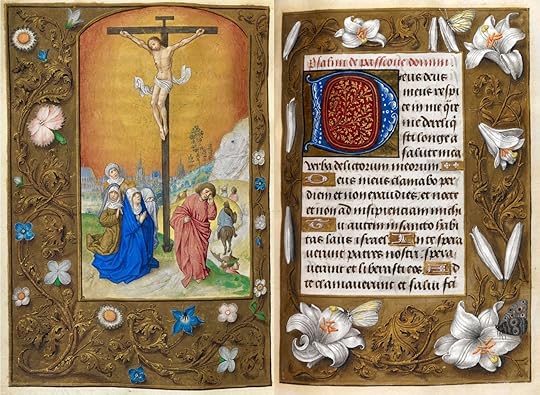 Psalmi de passione domini
Deus deus
meus respi
ce in me qre
me dereliq
sti longe a
salute mea
verba delictorum meorum
Deus meus clamabo per
diem et non exaudies et nocte
et non ad insipientiam michi
Tu autem in sancto habi
tas laus israel In te spera
uerunt patres nostri spera
uerunt et liberasti eos Ad
te clamauerunt et salui